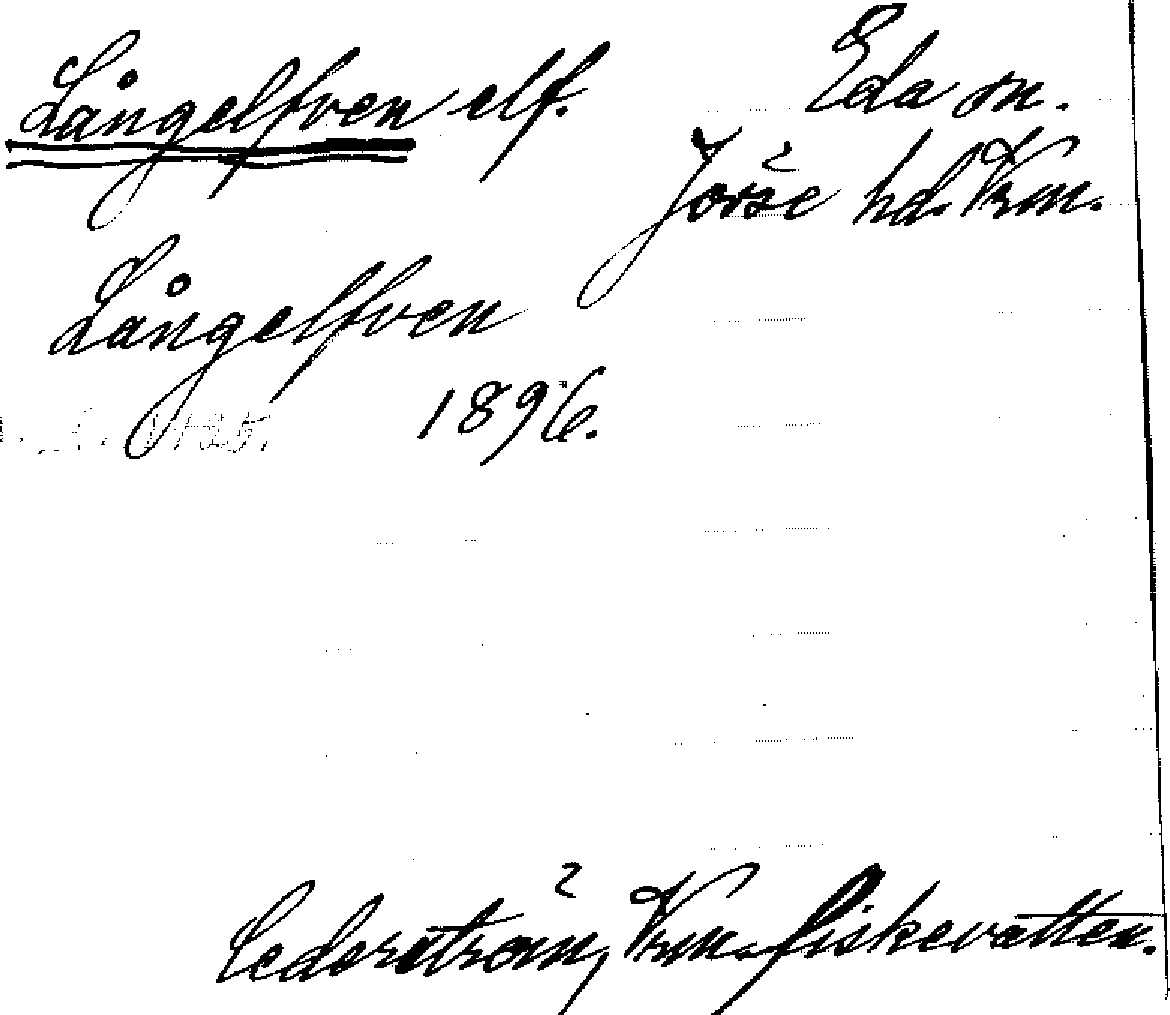 Långelfven elf.
Eda sn.
Jösse hd. Vrm.
Långelfven
1896.
Cederström, Vrm. fiskevatten.